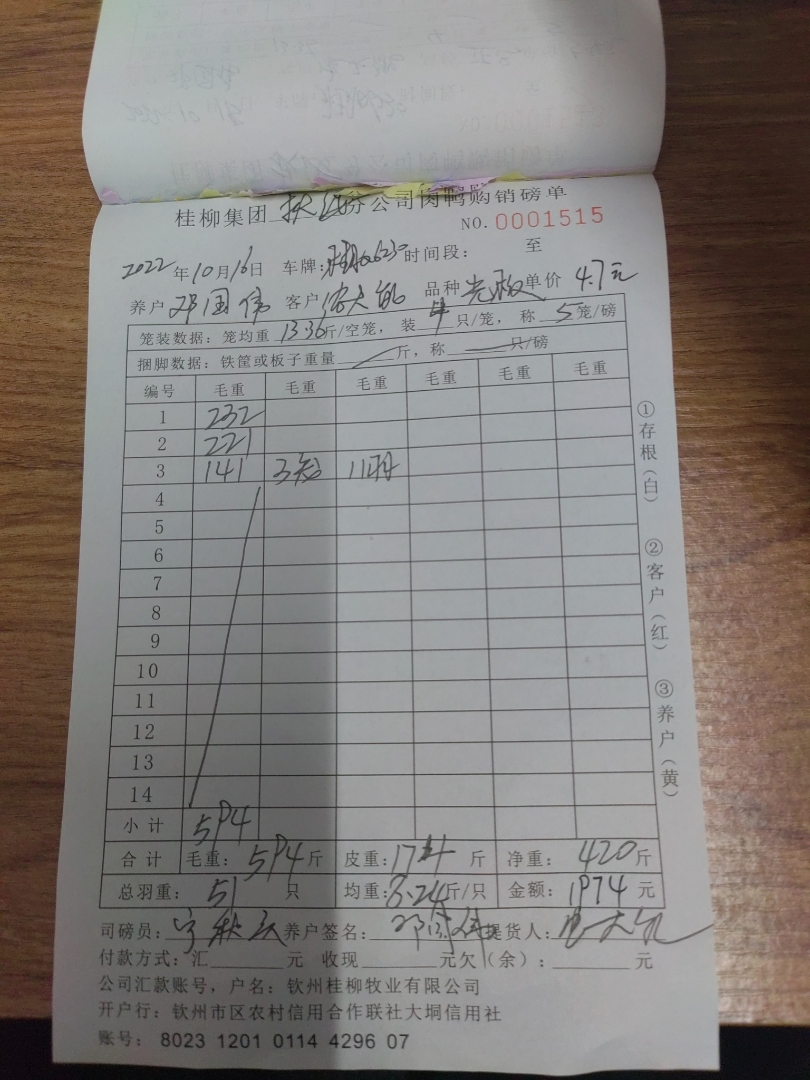 桂柳集团 分公司肉鸭购销磅单
NO.0001515
2022年10月16日 车牌: 时间段: 至
养户 邓国伟 客户 品种 单价 4.7元
笼装数据:笼均重 13.36斤/空笼,装 4 只/笼,称 5 笼/磅
捆脚数据:铁筐或板子重量 斤,称 只/磅
编号 毛重 毛重 毛重 毛重 毛重 毛重
1 232
2 221
3 141 3 11羽
4
5
6
7
8
9
10
11
12
13
14
小计 594
合计 毛重: 594斤 皮重:174斤 净重: 420斤
总羽重: 51 只 均重:8.24斤/只 金额:1974元
司磅员: 养户签名: 邓国伟 提货人:
付款方式:汇 元 收现 元欠(余): 元
公司汇款账号,户名:钦州桂柳牧业有限公司
开户行:钦州市区农村信用合作联社大垌信用社
账号: 8023 1201 0114 4296 07
①存根(白)
②客户(红)
③养户(黄)